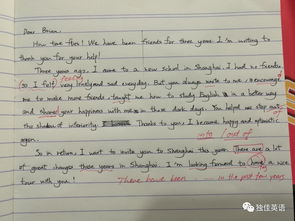 Dear Brian,
How time flies! We have been friends for three years. I'm writing to
thank you for your help!
Three years ago, I came to a new school in Shanghai. I had no friends
(so I felt) very lonely and sad everyday. But you always wrote to me, encourage
feeling
me to make more friends, taught me how to study English in a better way
and shared your happiness with me in those dark days. You helped me step out
the shadow of inferiority. Thanks to you, I become happy and optimistic
again.
into / out of
So in return, I want to invite you to Shanghai this year. There are a lot
of great changes these years in Shanghai. I'm looking forward to have a nice
tour with you!
There have been ... in the past few years
独佳英语